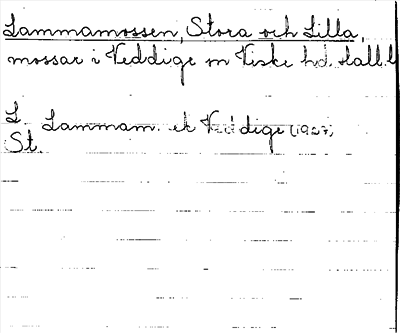 Lammamossen, Stora och Lilla,
mossar i Veddige sn Viske hd. Hall. l
L. Lammam. ek Veddige (1927)
St.